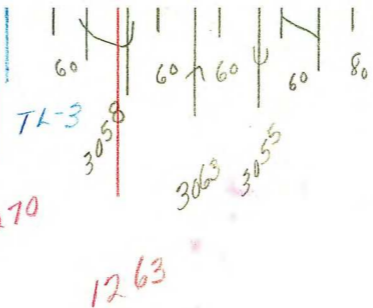 60 60 60 60 80
TL-3
3058
3063 3055
70
12 63